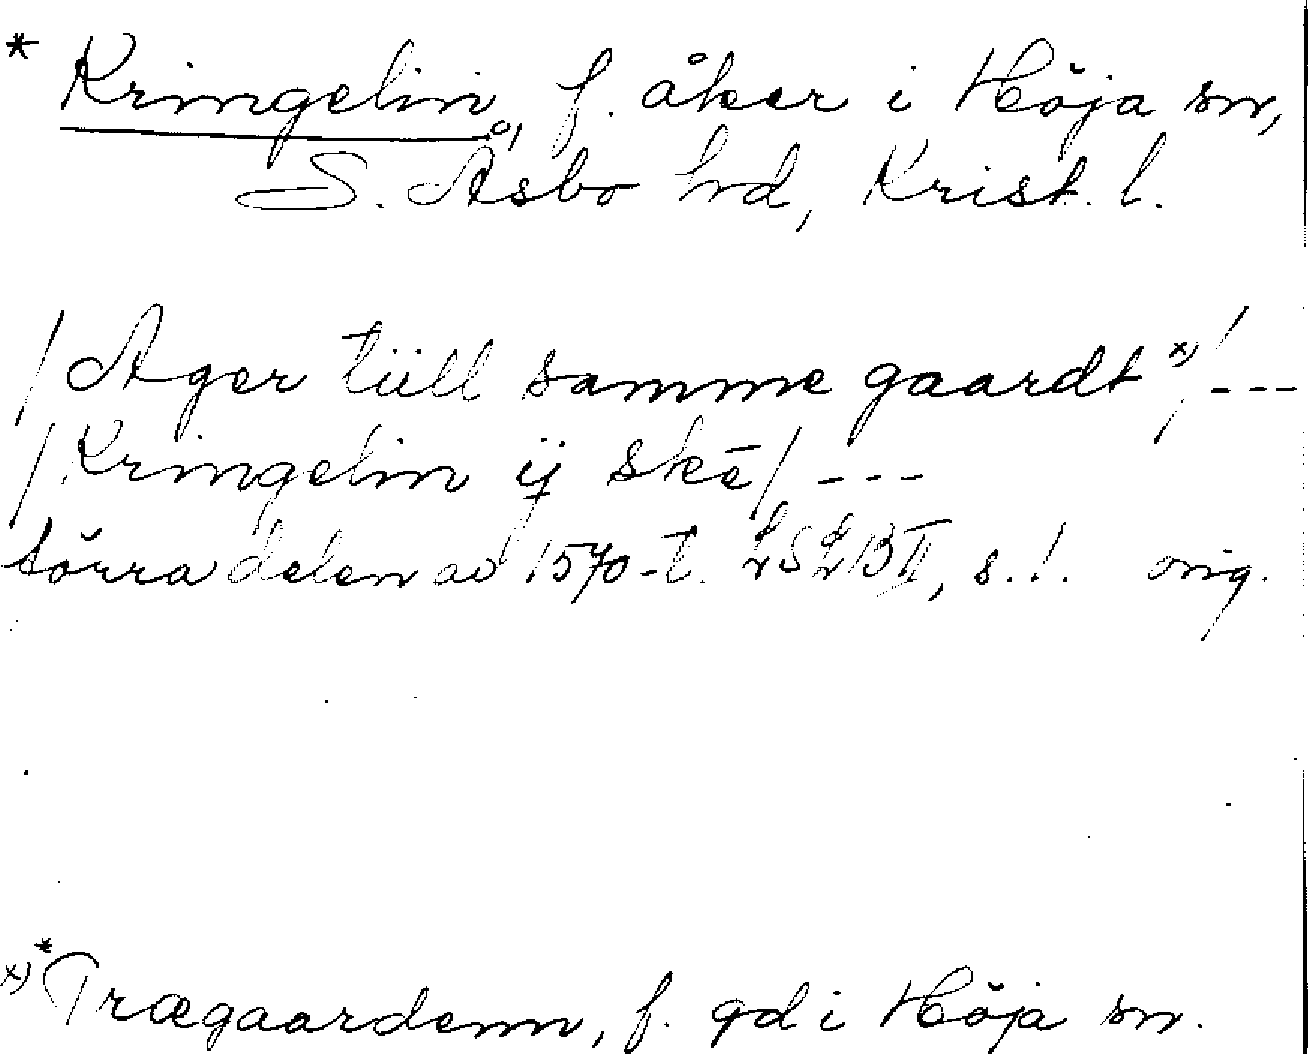 * Kringelin, f. åker i Höja sn,
S. Åsbo hd, Krist. l.
/Ager tüll samme gaardt x)/ ---
/Kringelin ÿ skē/ ---
större delen av 1570-t. LSLB II, s. 1. orig.
x) * Trægaardenn, f. gd i Höja sn.